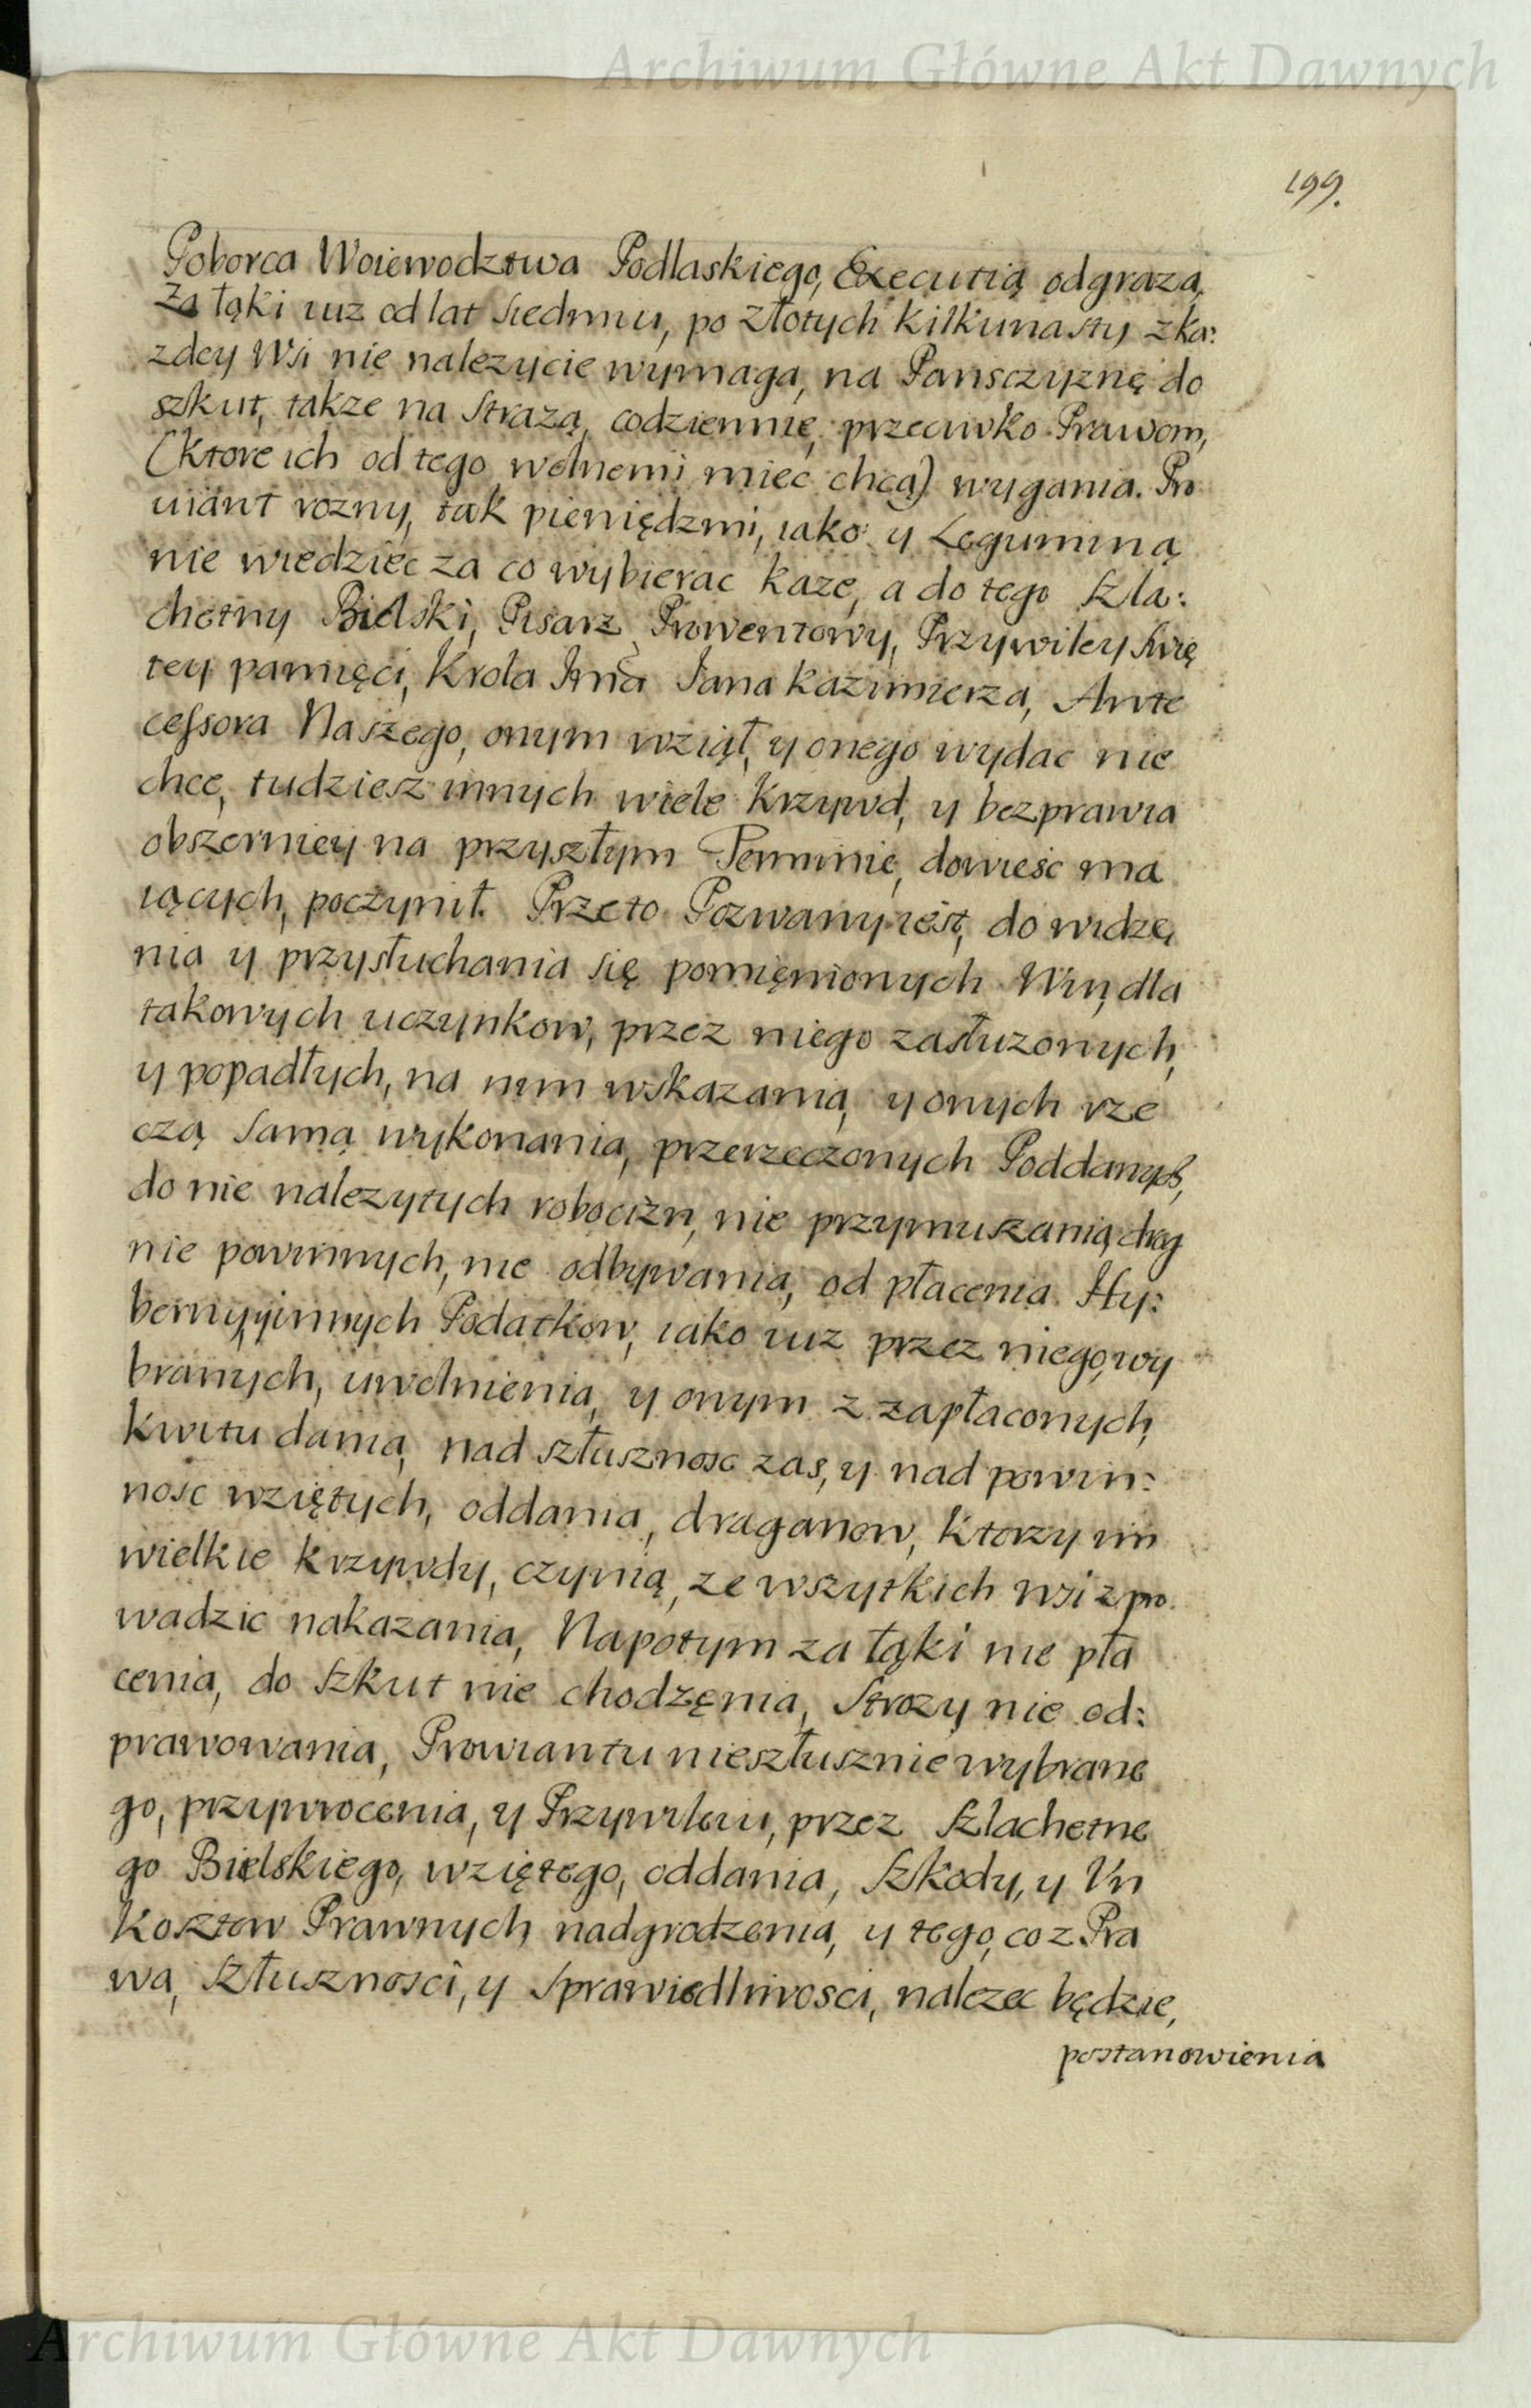 Archiwum Główne Akt Dawnych
199.
Poborca Woiewodztwa Podlaskiego, Executią odgraza,
Za łąki iuz od lat siedmiu, po Złotych kilkunasty z ka:
zdey Wsi nie nalezycie wymaga, na Pansczyznę do
szkut, takze na Strazą, codziennie, przeciwko Prawom,
(Ktore ich od tego wolnemi miec chcą) wygania. Pro
uiant rozny, tak pieniędzmi, iako y Leguminą
nie wiedziec za co wybierac kaze, a do tego Szla:
chetny Bielski, Pisarz Prowentowy, Przywiley Swię
tey pamięci, Krola Jmci Jana Kazimierza, Ante
cessora Naszego, onym wziął, y onego wydac nie
chce, tudziesz innych wiele Krzywd, y bezprawia
obszerniey na przyszłym Terminie, dowieść ma
iących, poczynił. Przeto Pozwany iest, do widzę
nia y przysłuchania się pomięnionych Win, dla
takowych uczynkow, przez niego zasłuzonych,
y popadłych, na nim wskazania, y onych rze
czą samą wykonania, przerzeczonych Poddanych,
do nie nalezytych robocizn, nie przymuszania, drog
nie powinnych, nie odbywania, od płacenia Hy:
berny, y innych Podatkow, iako iuz przez niego, wy
branych, uwolnienia, y onym z zapłaconych,
Kwitu dania, nad szłusznosc zas, y nad powin:
nosc wziętych, oddania, draganow, Ktorzy im
wielkie krzywdy, czynią, ze wszytkich wsi z pro
wadzic nakazania, Napotym za łąki nie pła
cenia, do Szkut nie chodzęnia, Strozy nie od:
prawowania, Prowiantu niesłusznie wybrane
go, przywrocenia, y Przywileiu, przez Szlachetne
go Bielskiego, wziętego, oddania, Szkody, y Vn
Kosztow Prawnych nadgrodzenia, y tego, co z Pra
wa, Szłusznosci, y Sprawiedliwosci, nalezec będzie,
postanowienia
Archiwum Główne Akt Dawnych